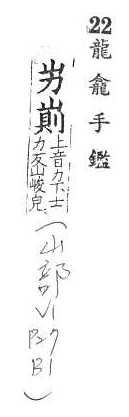 22龍龕手鑑
屴崱上音力下士
力反山峻皃
(山部